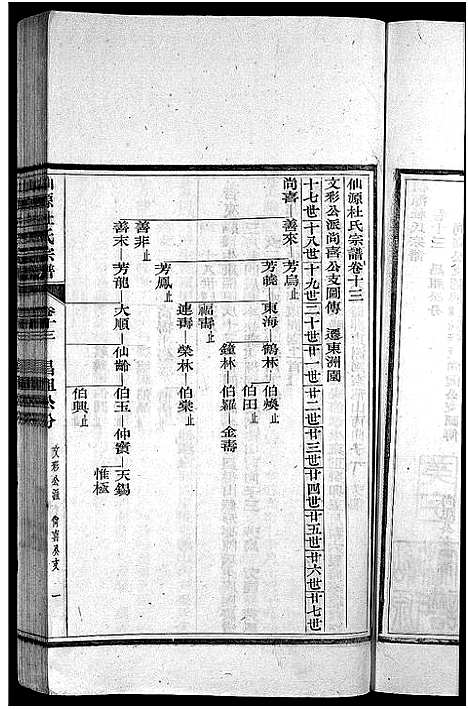 仙源杜氏宗譜卷十三
文彩公派尚喜公支圖傳　遷東洲園
十七世十八世十九世二十世廿一世廿二世廿三世廿四世廿五世廿六世廿七世
尚喜—善來—芳鳥止
芳巍—東海—鶴林—伯煥止
伯田止
鐘林—伯羅—金壽
福壽止
連壽—榮林—伯棠止
芳鳳止
善非止
善末—芳龍—大順—仙齡—伯玉—仲寶—天錫
惟極
伯興止
仙源杜氏宗譜
卷十三
昌祖公分
文彩公派　尚喜公支　一